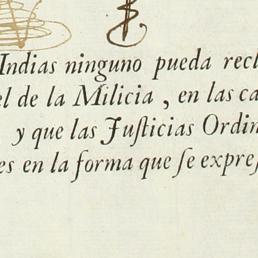 Indias ninguno pueda recl
el de la Milicia, en las ca
y que las Juſticias Ordin
es en la forma que ſe expreſ